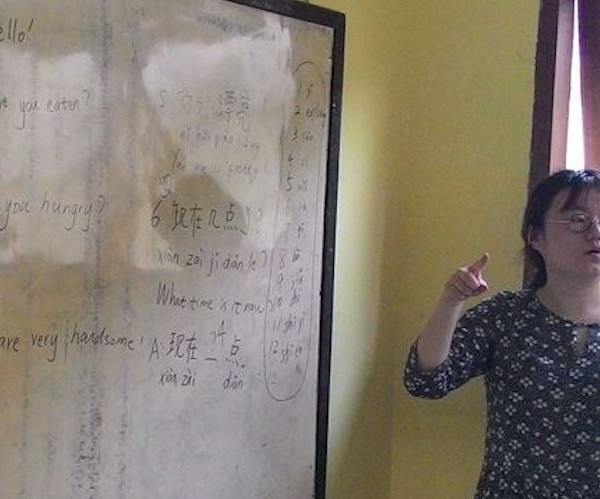 ello!
you eaten?
you hungry?
are very handsome!
5 你好漂亮!
nǐ hǎo piào liàng
You are so pretty!
6 现在几点了?
xiàn zài jǐ diǎn le?
What time is it now?
A: 现在二点
xiàn zài diǎn
1 yī
2 èr
3 sān
4 sì
5 wǔ
8 bā
9 jiǔ
10 shí
11 shí yī
12 shí èr